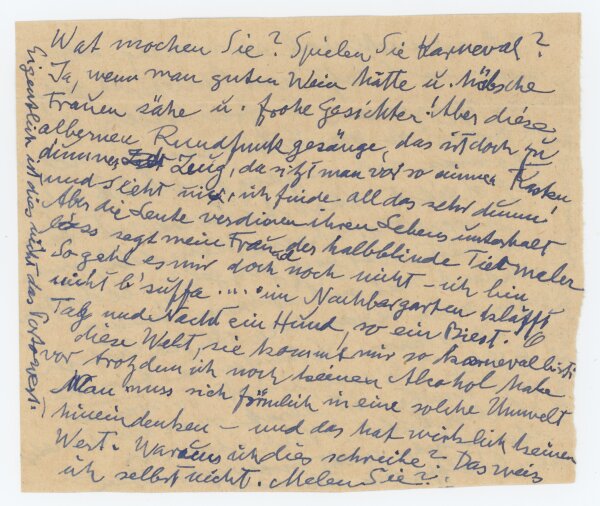 Wat mochen Sie? Spielen Sie Karneval?
Ja, wenn man guten Wein hätte u. hübsche
Frauen sähe u. frohe Gesichter! Aber diese
albernen Rundfunkgesänge, das ist doch zu
dummes Zeug, da sitzt man vor so einem Kasten
und sieht nix, ich finde all das sehr dumm!
Aber die Leute verdienen ihren Lebensunterhalt
sagt mein Freund der halbblinde Tiermaler
So gehe es mir doch noch nicht – ich bin
nicht b'suffa .... im Nachbargarten kläfft
Tag und Nacht ein Hund, so ein Biest. O
diese Welt, sie kommt mir so karnevalistisch
vor trotzdem ich noch keinen Alcohol habe
Man muss sich förmlich in eine solche Umwelt
hineindenken – und das hat wirklich keinen
Wert. Warum ich dies schreibe? Das weis
ich selbst nicht. Malen Sie?
Eigentlich ist dies nicht das Porto wert.